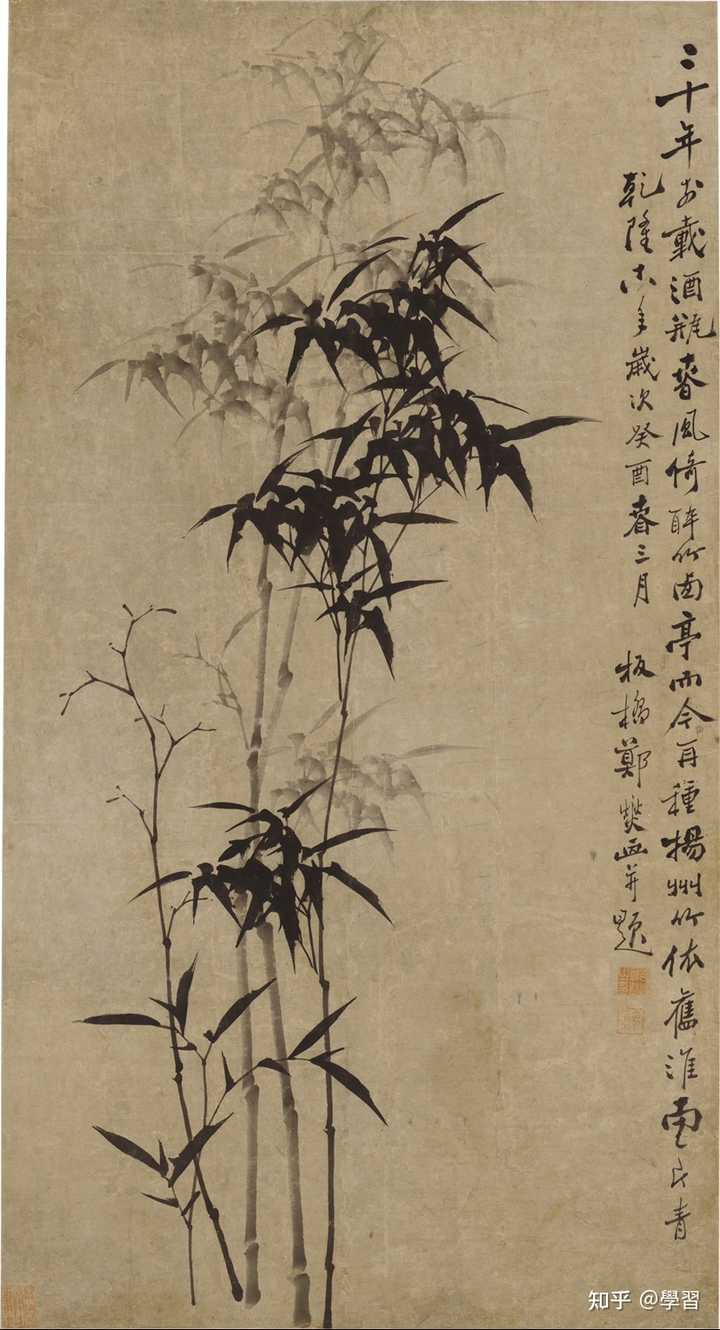 二十年前載酒瓶春風倚醉竹西亭而今再種揚州竹依舊淮南一片青
乾隆十八年歲次癸酉春三月 板橋鄭燮畫并題
知乎 @學習